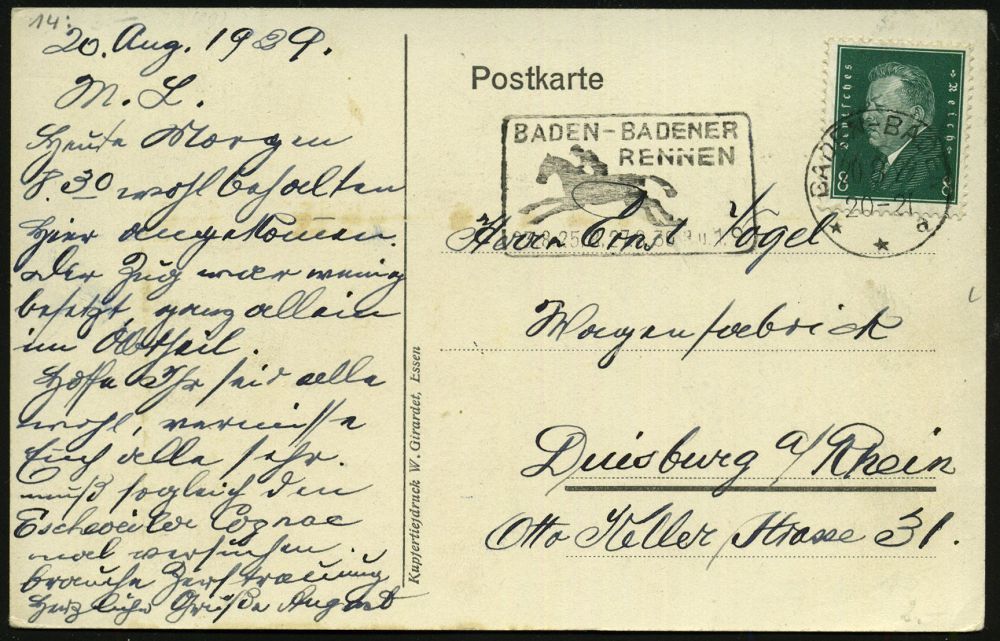 14:
20. Aug. 1929.
M. L.
Heute Morgen
8.30 wohlbehalten
hier angekommen.
Der Zug war wenig
besetzt, ganz allein
im Abtheil.
Hoffe Ihr seid alle
wohl, vermisse
Euch alle sehr.
muß sogleich den
Eschweiler Cognac
mal versuchen.
brauche Zerstreuung
Herzliche Grüße August
Kupfertiefdruck W. Girardet, Essen
Postkarte
BADEN-BADENER
RENNEN
Deutsches Reich
8 8
BADEN-BADEN
20-21
* * a
Herrn Ernst Vogel
Wagenfabrick
Duisburg a/Rhein
Otto Keller Strasse 31.